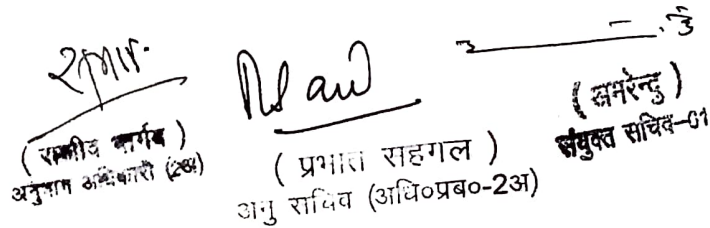 ( राजीव भार्गव )
अनुभाग अधिकारी (2अ)
( प्रभात सहगल )
अनु सचिव (अधि०प्रब०-2अ)
( अमरेन्दु )
संयुक्त सचिव-01